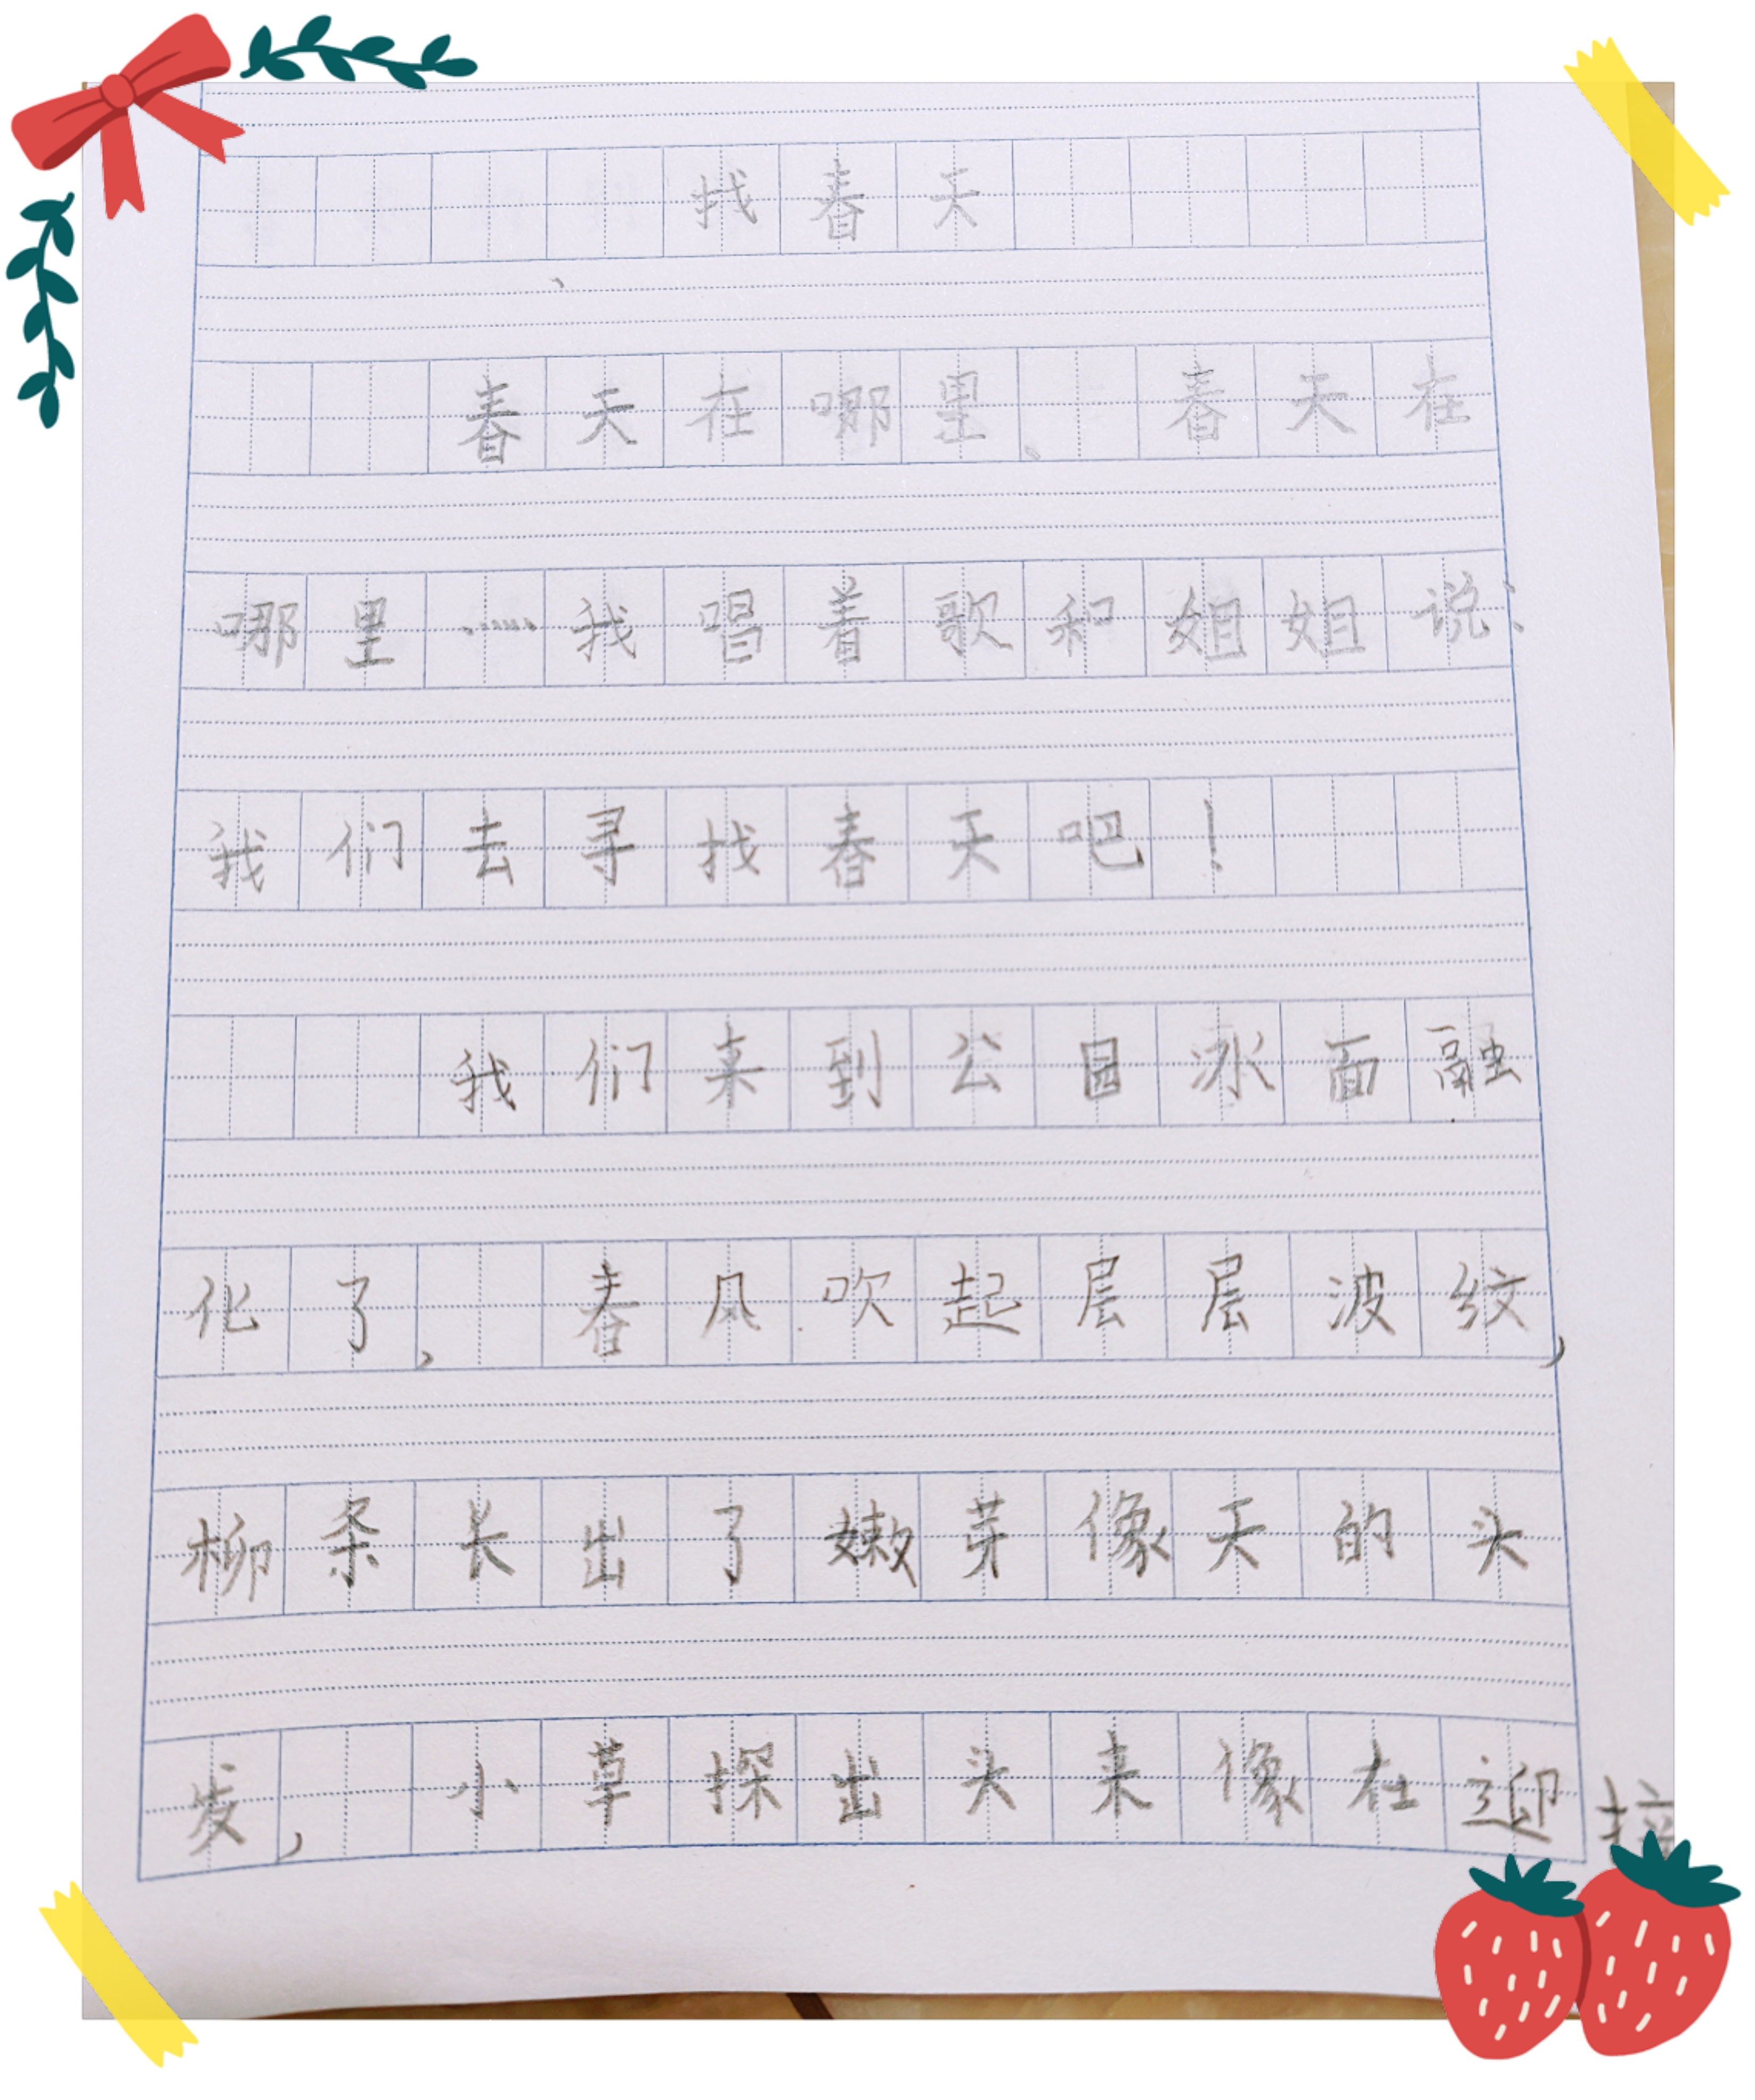 找春天
春天在哪里、春天在
哪里……我唱着歌和姐姐说:
我们去寻找春天吧!
我们来到公园冰面融
化了,春风吹起层层波纹,
柳条长出了嫩芽像天的头
发,小草探出头来像在迎接